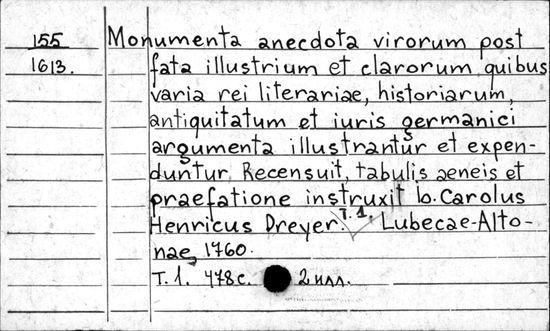 155
1613.
Monumenta anecdota virorum post
fata illustrium et clarorum quibus
varia rei literariae, historiarum,
antiquitatum et iuris germanici
argumenta illustrantur et expen-
duntur. Recensuit, tabulis aeneis et
praefatione instruxit Io. Carolus
Henricus Dreyer. T. 1. Lubecae-Alto-
nae, 1760.
T. 1. 478 с. 2 илл.